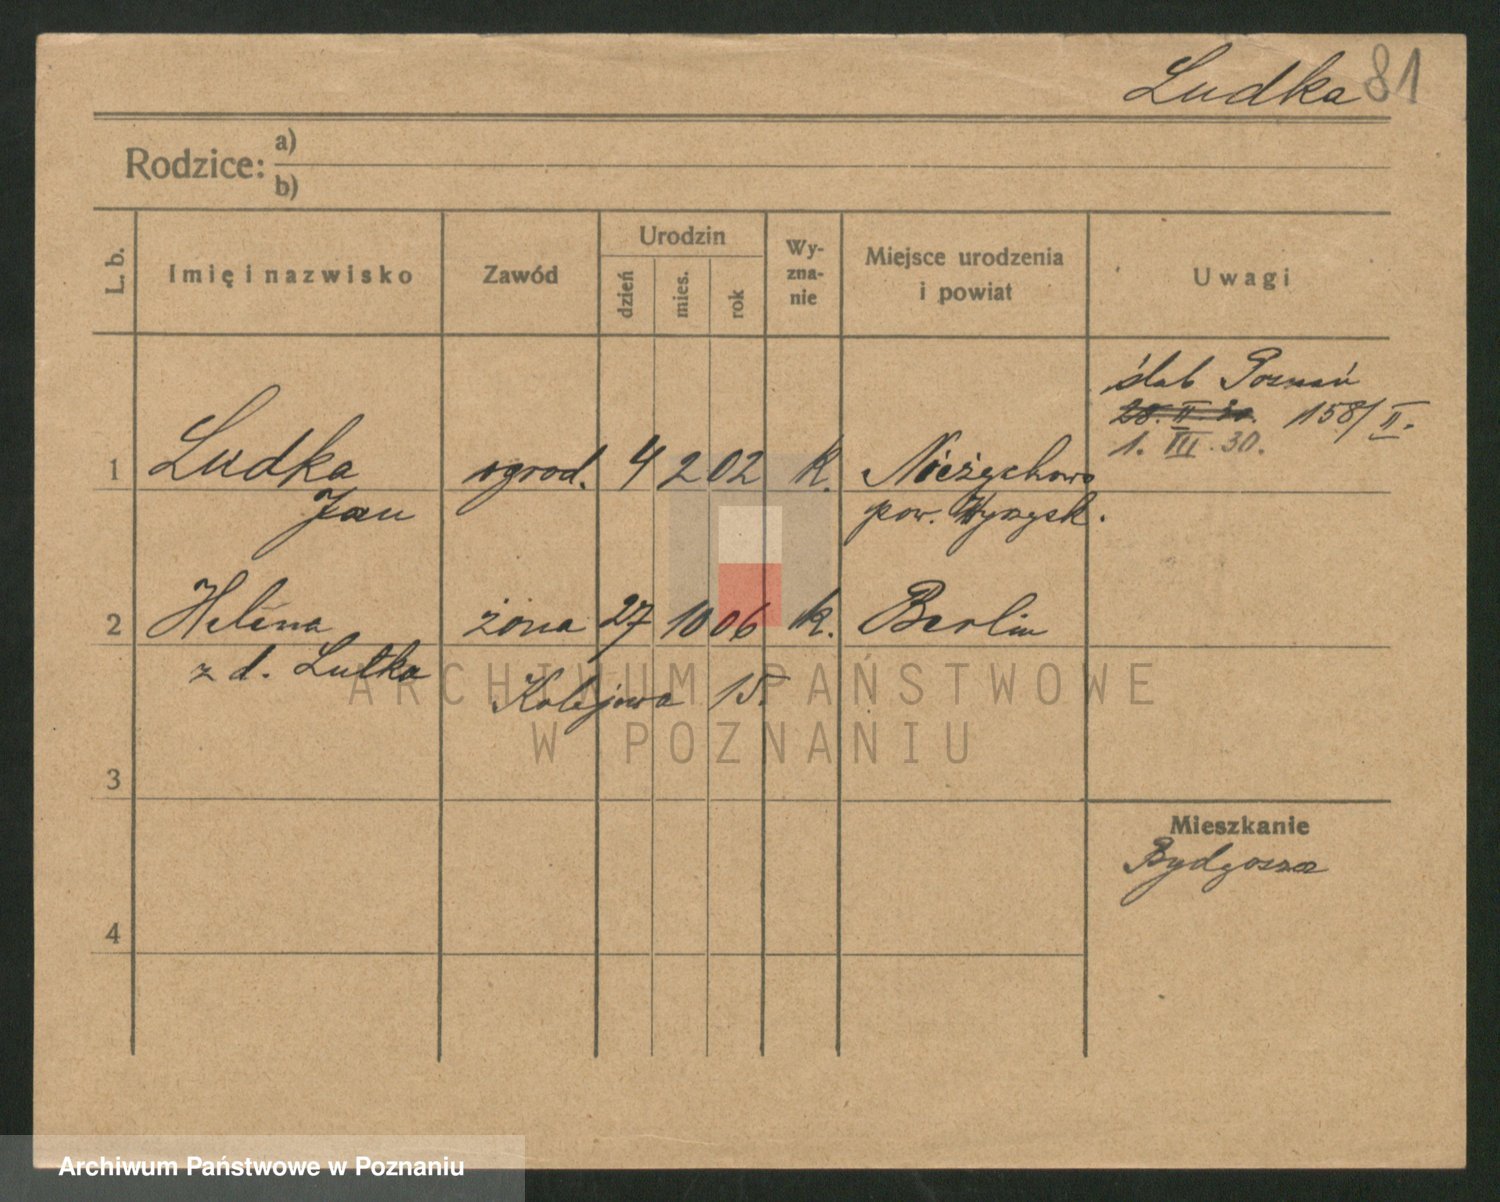 Ludka 81
Rodzice: a)
b)
L. b.
Imię i nazwisko
Zawód
Urodzin
dzień
mies.
rok
Wy-
zna-
nie
Miejsce urodzenia
i powiat
Uwagi
ślub Poznań
28. II. 30. 158/II.
1. III. 30.
1 Ludka ogrod. 4 2 02 k. Nieżychowo
Jan pow. Wyrzysk.
2 Helena żona 27 10 06 k. Berlin
z d. Lutka
Kolejowa 15.
ARCHIWUM PAŃSTWOWE
W POZNANIU
3
Mieszkanie
Bydgoszcz
4
Archiwum Państwowe w Poznaniu